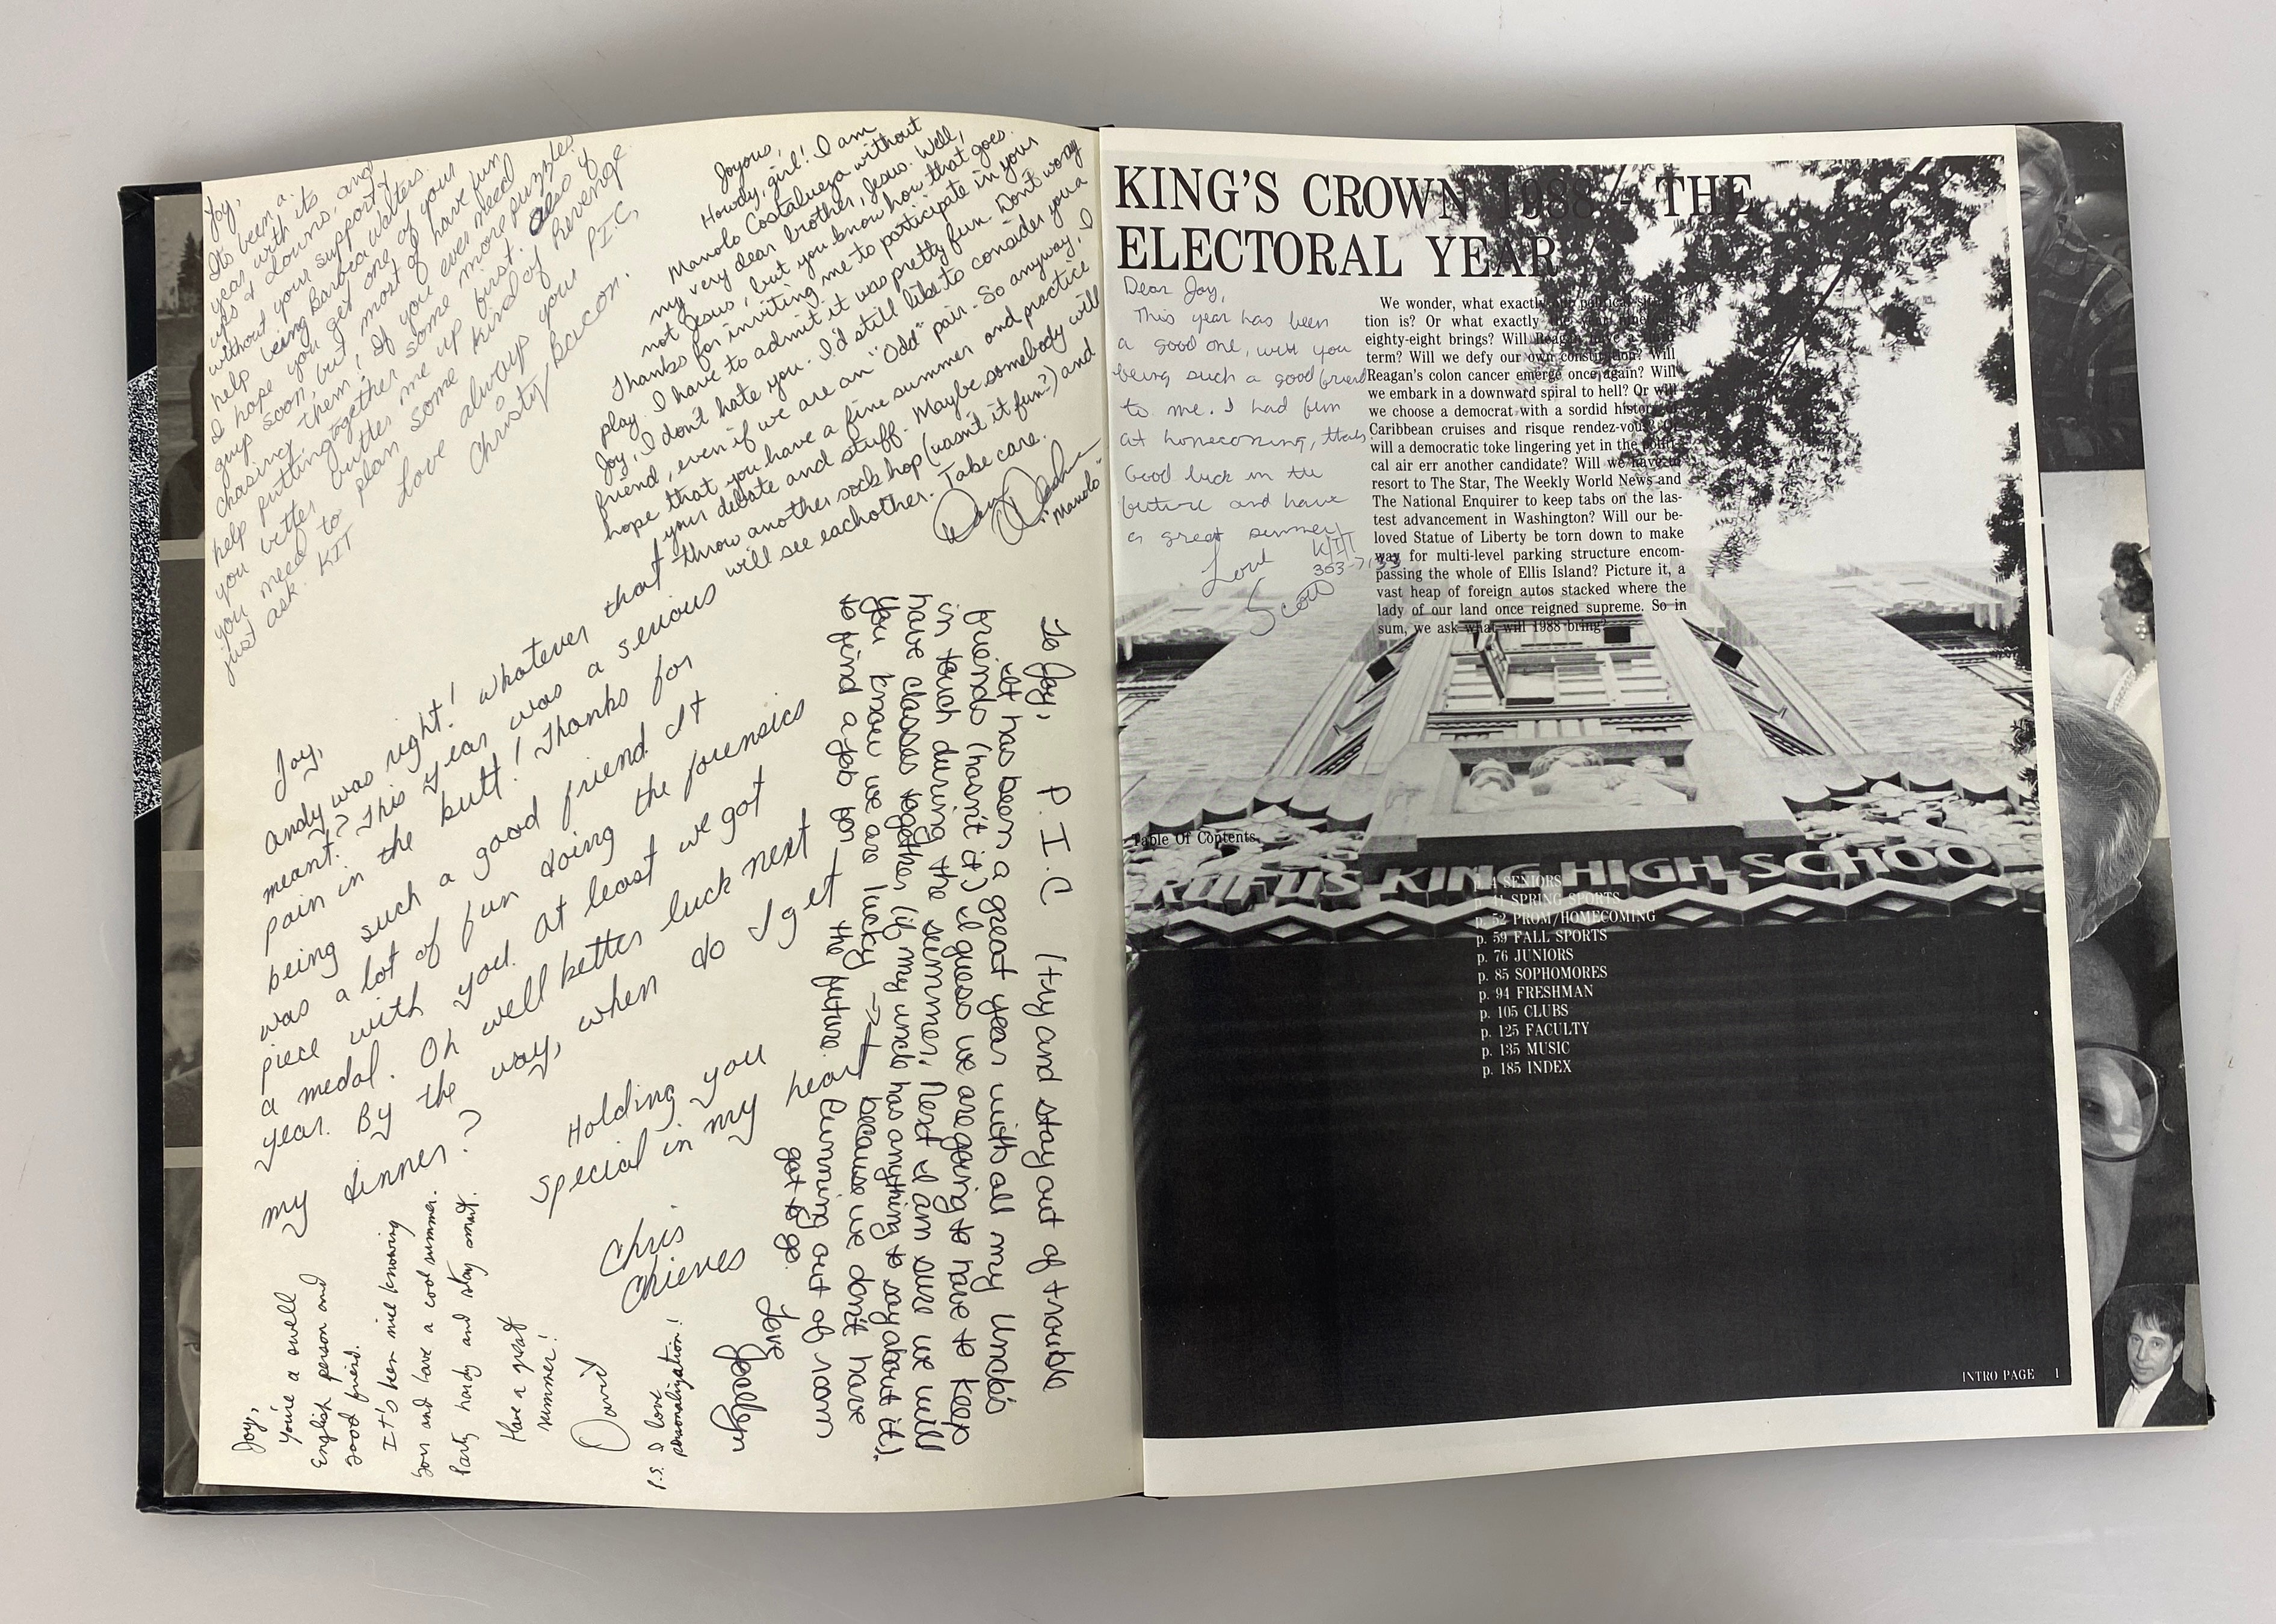 Joy,
Its been a
year with its
ups & downs, and
without your support &
help being Barbca Walters.
I hope you get one of your
guys soon, but most of have fun
chasing them! If you ever need
help putting together some more puzzles
you better butter me up first. Also if
you need to plan some kind of revenge
just ask. KIT
Love always your P.I.C,
Christy Bacon.
Joyous,
Howdy, girl! I am
Manolo Costalueza without
my very dear brother, Jesus. Well,
not Jesus, but you know how that goes.
Thanks for inviting me to participate in your
play. I have to admit it was pretty fun. Don't worry
Joy, I don't hate you. I'd still like to consider you a
friend, even if we are an "Odd" pair. So anyway, I
hope that you have a fine summer and practice
your debate and stuff. Maybe somebody will
throw another sock hop (wasn't it fun?) and
will see eachother. Take care.
"Manolo"
Joy,
Andy was right! whatever that
meant? This year was a serious
pain in the butt! Thanks for
being such a good friend. It
was a lot of fun doing the forensics
piece with you. At least we got
a medal. Oh well better luck next
year. By the way, when do I get
my dinner?
Holding you
special in my heart
Chris
Chieves
To Joy, P.I.C (try and stay out of trouble
It has been a great year with all my Uncle's
friends (hasn't it;) I guess we are going to have to keep
in touch during the summer, Next I am sure we will
have classes together (if my uncle has anything to say about it).
You know we are lucky → because we don't have
to find a job for the future. Running out of room
got to go.
Love
Joy,
You're a swell
English person and
good friend.
It's been nice knowing
you and have a cool summer.
Party hardy and stay smart.
Have a great
summer!
David
P.S. I love
personalization!
KING'S CROWN 1988/- THE
ELECTORAL YEAR
Dear Joy,
This year has been
a good one, with you
being such a good friend
to me. I had fun
at homecoming, thanks
Good luck in the
future and have
a great summer
Love KIT
Scott
We wonder, what exactly political
tion is? Or what exactly
eighty-eight brings? Will Reagan have a
term? Will we defy our own constitution? Will
Reagan's colon cancer emerge once again? Will
we embark in a downward spiral to hell? Or will
we choose a democrat with a sordid history of
Caribbean cruises and risque rendez-vous? Or
will a democratic toke lingering yet in the politi-
cal air err another candidate? Will we have to
resort to The Star, The Weekly World News and
The National Enquirer to keep tabs on the las-
test advancement in Washington? Will our be-
loved Statue of Liberty be torn down to make
way for multi-level parking structure encom-
passing the whole of Ellis Island? Picture it, a
vast heap of foreign autos stacked where the
lady of our land once reigned supreme. So in
sum, we ask what will 1988 bring?
Table Of Contents
RUFUS KING HIGH SCHOO
p. 4 SENIORS
p. 41 SPRING SPORTS
p. 52 PROM/HOMECOMING
p. 59 FALL SPORTS
p. 76 JUNIORS
p. 85 SOPHOMORES
p. 94 FRESHMAN
p. 105 CLUBS
p. 125 FACULTY
p. 135 MUSIC
p. 185 INDEX
INTRO PAGE 1